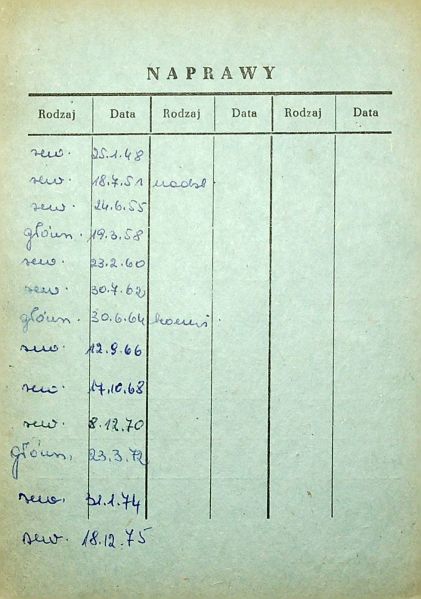 NAPRAWY
Rodzaj Data Rodzaj Data Rodzaj Data
rew. 25.1.48
rew. 18.7.51
rew. 24.6.55
główn. 19.3.58
rew. 23.2.60
rew. 30.7.62
główn. 30.6.64
rew. 12.9.66
rew. 17.10.68
rew. 8.12.70
główn. 23.3.72
rew. 31.1.74
rew. 18.12.75